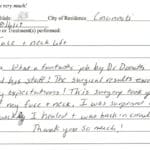 very much!
State: City of Residence Cincinnati
or Treatment(s) performed:
Face + neck lift
What a fantastic job by Dr. Donath
and his staff! The surgical results exceeded
my expectations! This surgery took years
my face + neck. I was surprised
quickly I healed + was back in circulation
Thank you so much!